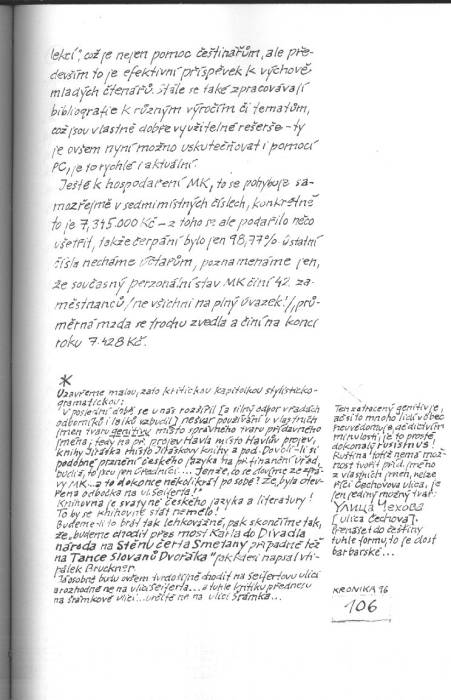 lekcí", což je nejen pomoc češtinářům, ale pře-
devším to je efektivní příspěvek k výchově
mladých čtenářů. Stále se také zpracovávají
bibliografie k různým výročím či tematům,
což jsou vlastně dobře využitelné rešerše - ty
je ovšem nyní možno uskutečňovat i pomocí
PC, je to rychlé i aktuální.
Ještě k hospodaření MK, to se pohybuje sa-
mozřejmě v sedmimístných číslech, konkrétně
to je 7,345.000 Kč - z toho se ale podařilo něco
ušetřit, takže čerpání bylo jen 98,77%. Ostatní
čísla necháme účtařům, poznamenáme jen,
že současný perzonální stav MK činí 42 za-
městnanců /ne všichni na plný úvazek!/, prů-
měrná mzda se trochu zvedla a činí na konci
roku 7.428 Kč.
*
Uzavřeme malou, zato kritickou kapitolkou stylisticko-
gramatickou:
V poslední době se u nás rozšířil [a silný odpor v řadách
odborníků i laiků vzbudil] nešvar používání u vlastních
jmen tvaru genitivu místo správného tvaru přídavného
jména; tedy na př. projev Havla místo Havlův projev,
knihy Jiráska místo Jiráskovy knihy a pod. Dovolí-li si
podobné prznění českého jazyka na př. finanční úřad,
budiž, to jsou jen úředníci... Jenže, co se dovíme ze zprá-
vy MK... a to dokonce několikrát po sobě? Že, byla otev-
řena odbočka na ul. Seiferta!
Knihovna je svatyně českého jazyka a literatury!
To by se knihovně stát nemělo!
Budeme-li to brát tak lehkovážně, pak skončíme tak,
že "budeme chodit přes most Karla do Divadla
národa na Stěnu čerta Smetany případně též
na Tance Slovanů Dvořáka" jak kdesi napsal chi-
rálek Bruckner.
Já osobně budu ovšem tvrdošíjně chodit na Seifertovu ulici
a rozhodně ne na ulici Seiferta... a tuhle kritiku přednesu
na Šrámkově ulici... určitě ne na ulici Šrámka...
Ten zatracený genitiv je,
ač si to mnoho lidí vůbec
neuvědomuje, dědictvím
minulosti, je to prostě
dokonalý rusismus!
Ruština totiž nemá mož-
nost tvořit příd. jméno
z vlastních jmen, nelze
říci Čechovova ulice, je
jen jediný možný tvar:
УЛИЦА ЧЕХОВА
[ulica Čechova].
Přenášet do češtiny
tuhle formu, to je dost
barbarské...
KRONIKA 96
106